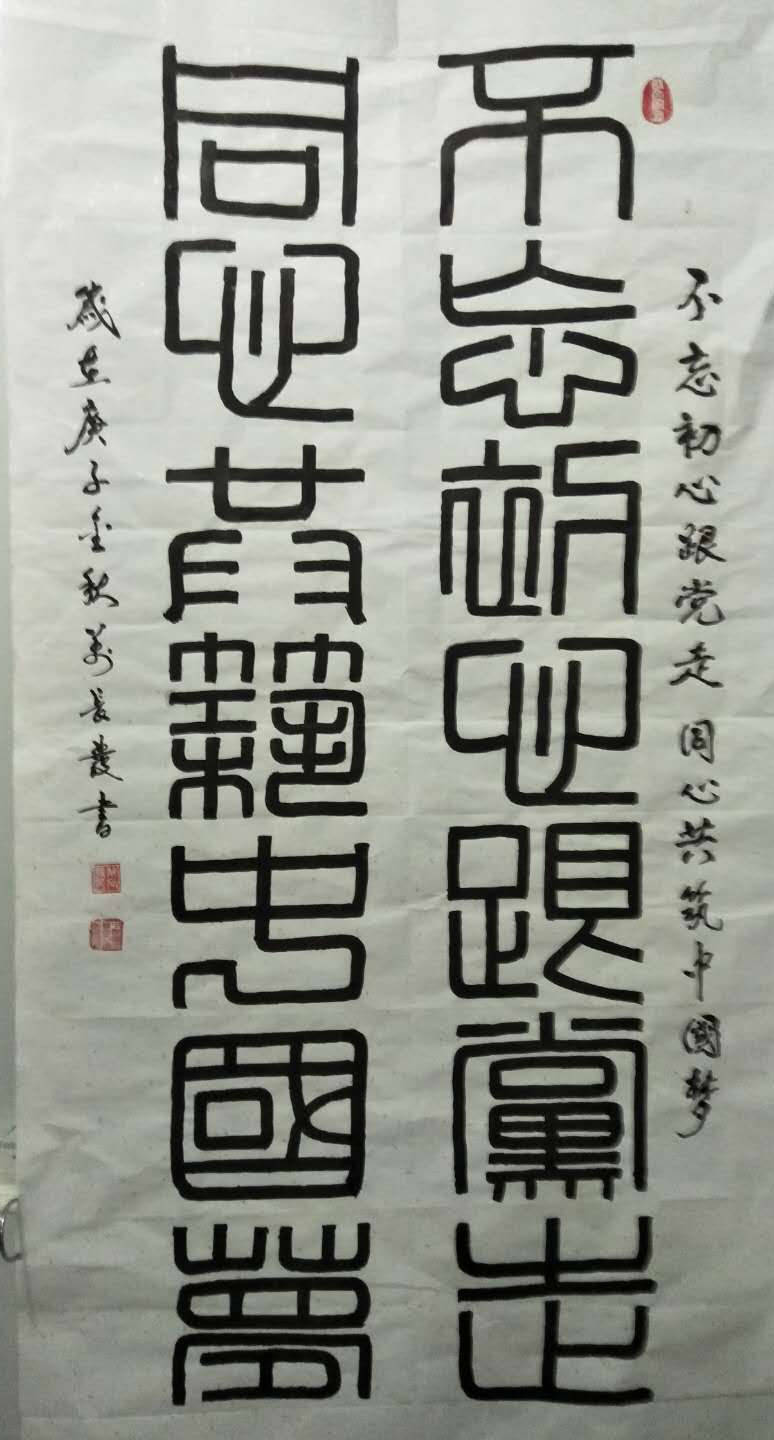 不忘初心跟党走 同心共筑中國梦
不忘初心跟黨走
同心共築中國夢
歲在庚子金秋萬長發書